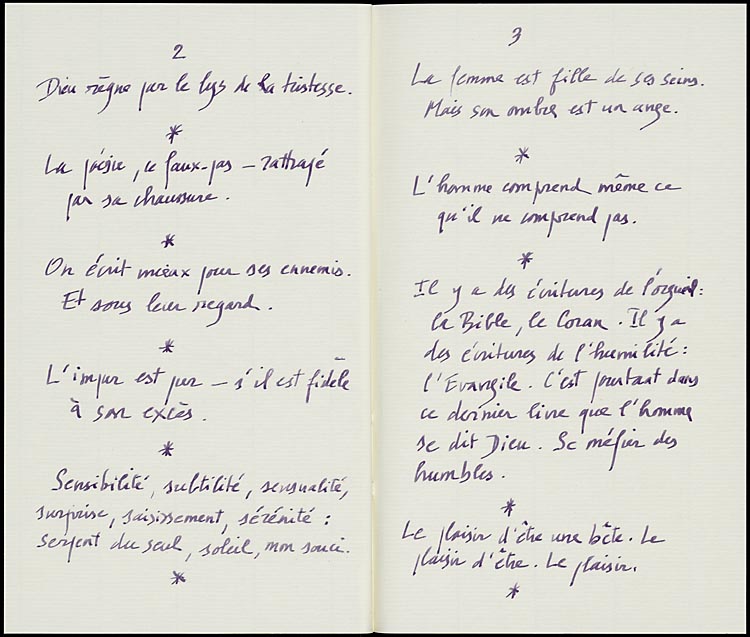 2
Dieu règne par le lys de la tristesse.
*
La poésie, ce faux-pas – rattrapé
par sa chaussure.
*
On écrit mieux pour ses ennemis.
Et sous leur regard.
*
L'impur est pur – s'il est fidèle
à son excès.
*
Sensibilité, subtilité, sensualité,
surprise, saisissement, sérénité :
serpent du seul, soleil, mon souci.
*
3
La femme est fille de ses seins.
Mais son ombre est un ange.
*
L'homme comprend même ce
qu'il ne comprend pas.
*
Il y a des écritures de l'orgueil :
la Bible, le Coran. Il y a
des écritures de l'humilité :
l'Evangile. C'est pourtant dans
ce dernier livre que l'homme
se dit Dieu. Se méfier des
humbles.
*
Le plaisir d'être une bête. Le
plaisir d'être. Le plaisir.
*